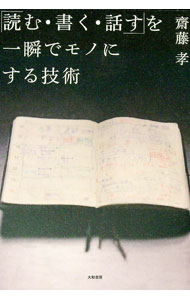 「読む・書く・話す」を
一瞬でモノに
する技術
齋藤 孝
大和書房